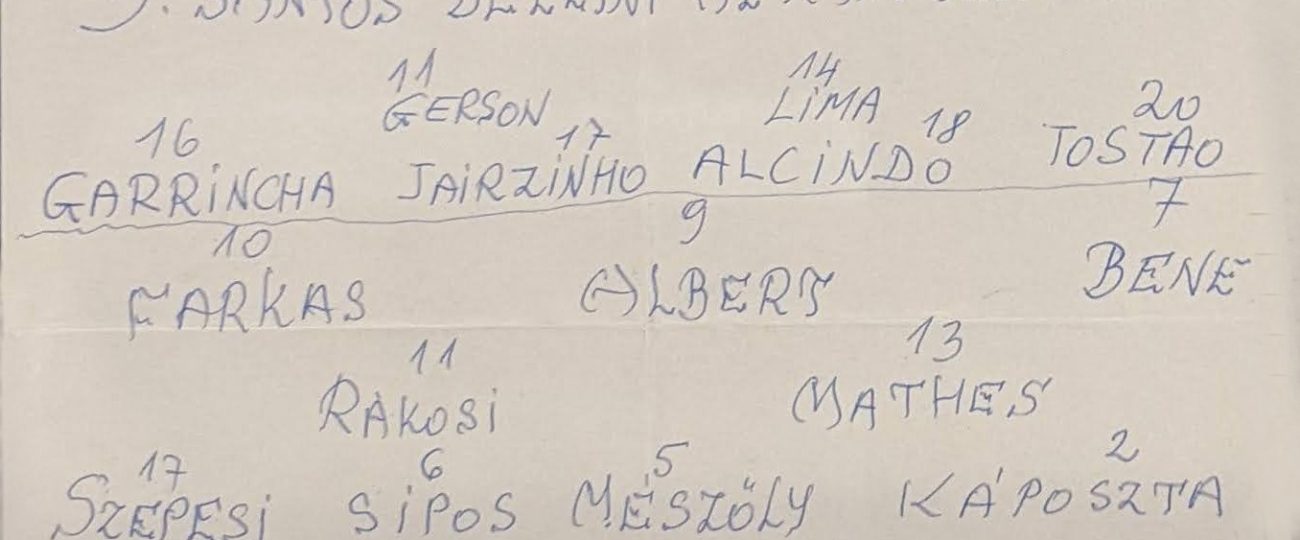 11 14
GERSON LIMA 20
16 17 18
GARRINCHA JAIRZINHO ALCINDO TOSTAO
10 9 7
FARKAS ALBERT BENE
11 13
RÁKOSI MATHES
17 6 5 2
SZEPESI SIPOS MÉSZÖLY KÁPOSZTA